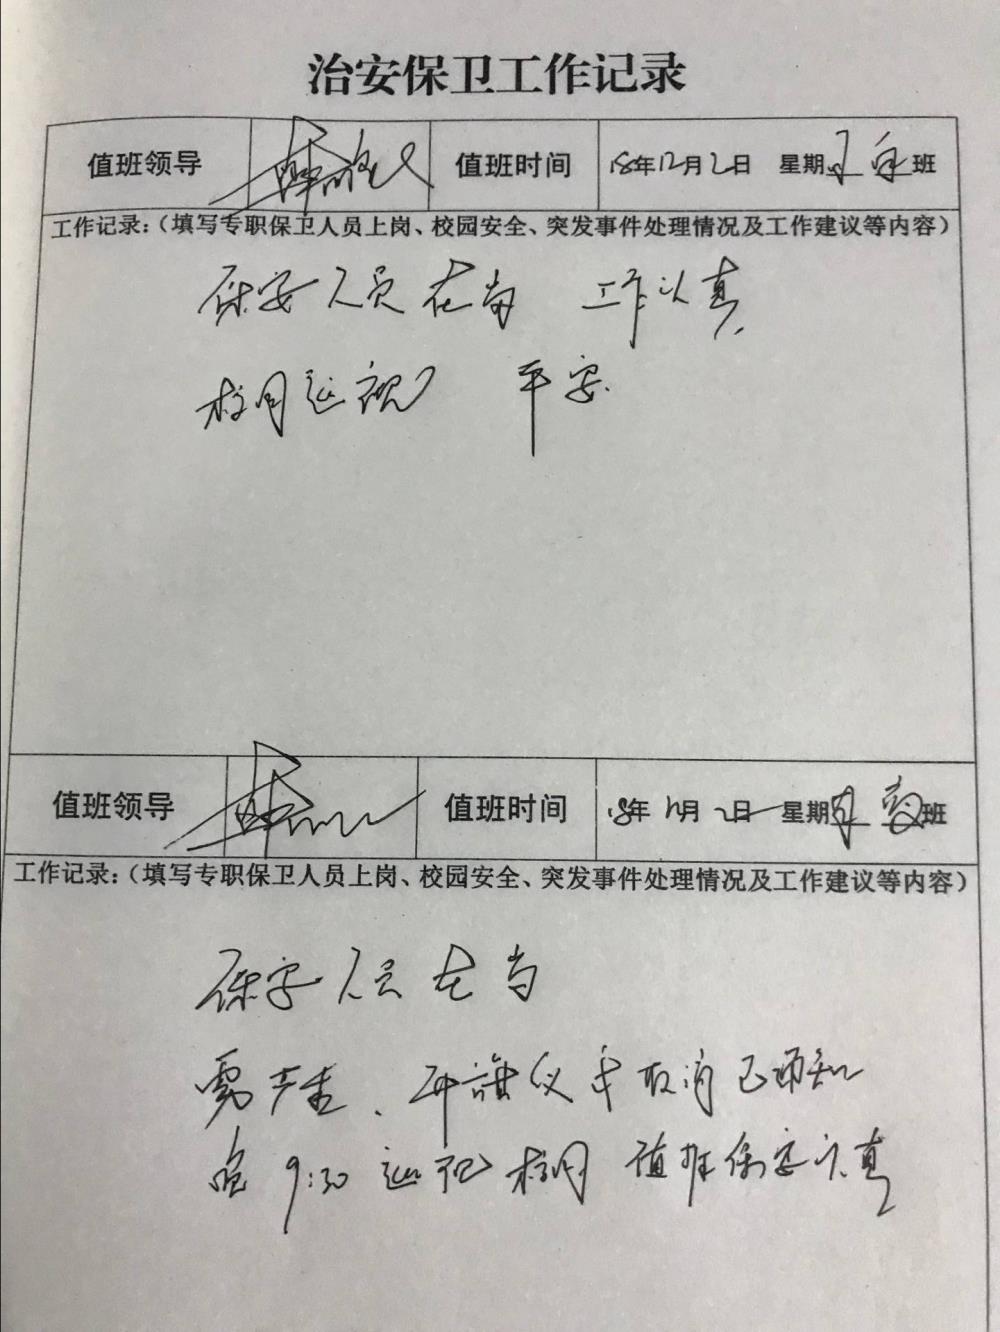 治安保卫工作记录
值班领导 值班时间 18年12月2日 星期日 白班
工作记录:(填写专职保卫人员上岗、校园安全、突发事件处理情况及工作建议等内容)
保安人员在岗 工作认真
校园巡视 平安
值班领导 值班时间 18年12月2日 星期日 夜班
工作记录:(填写专职保卫人员上岗、校园安全、突发事件处理情况及工作建议等内容)
保安人员在岗
雾严重、升旗仪式取消已通知
晚9:30巡视校园 值班保安认真